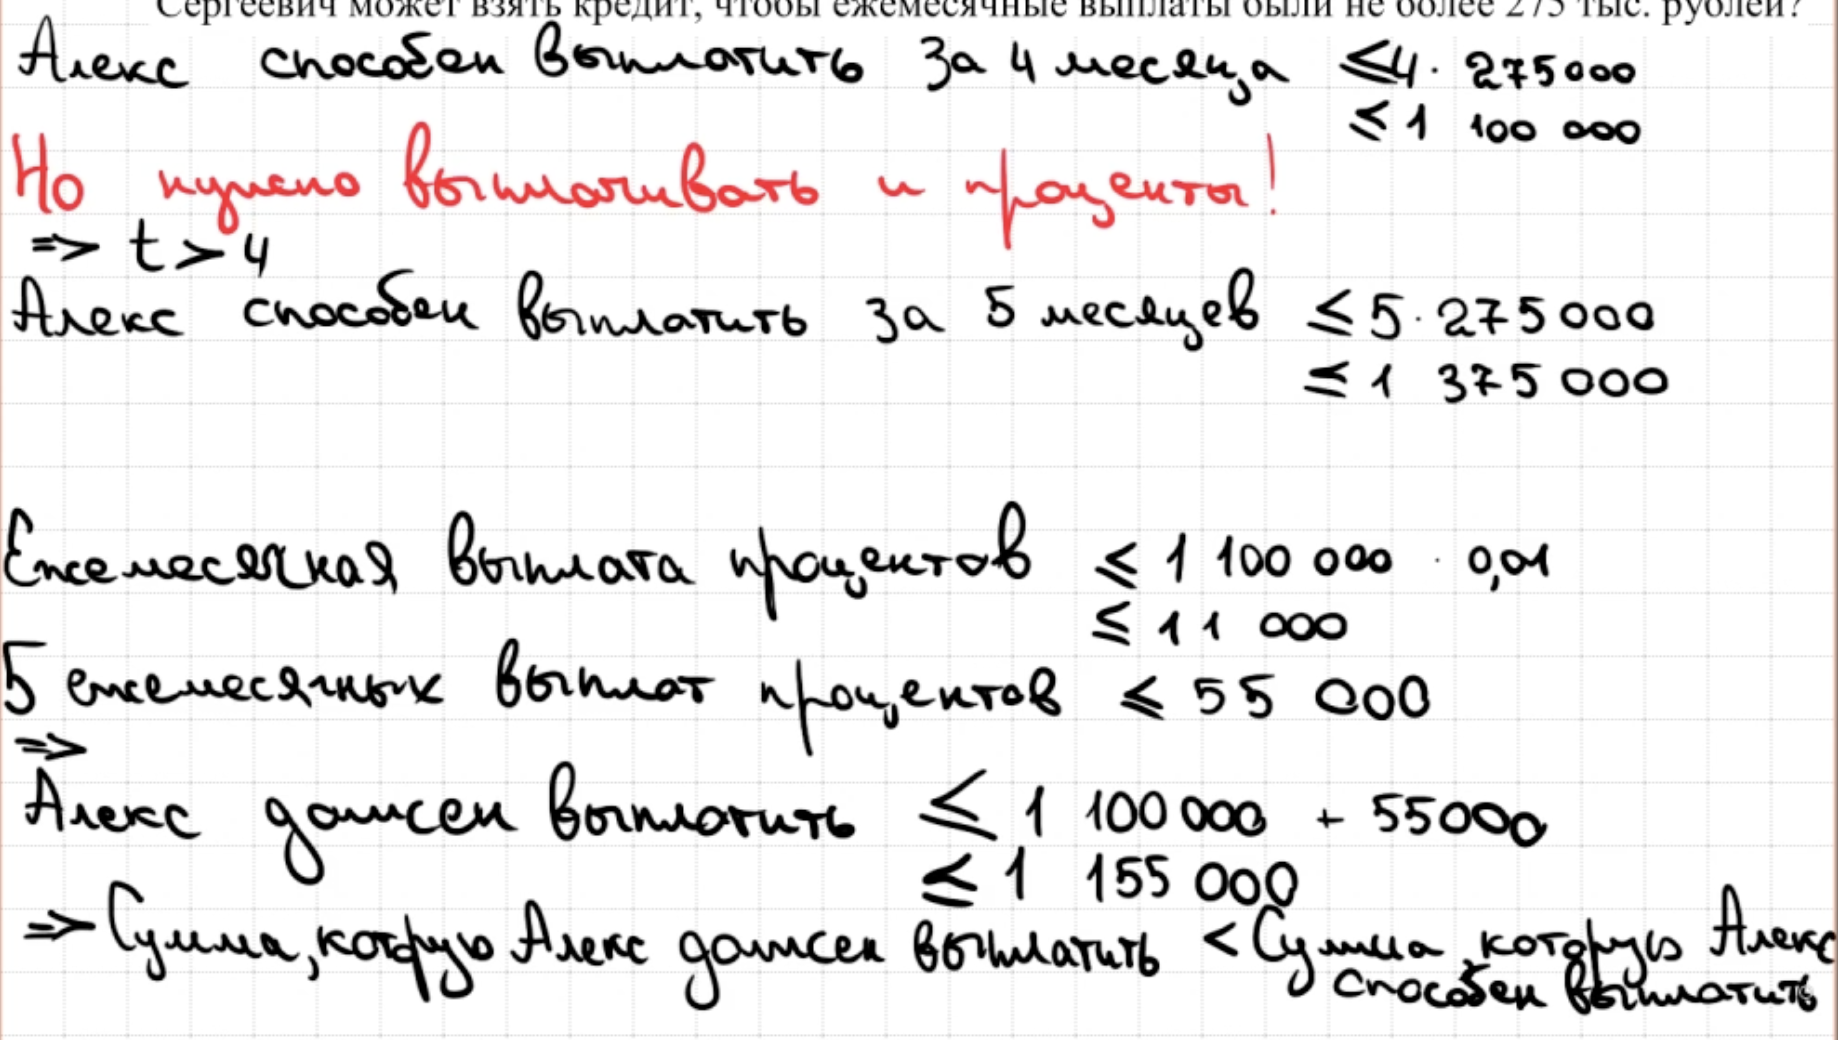 Сергеевич может взять кредит, чтобы ежемесячные выплаты были не более 275 тыс. рублей?
Алекс способен выплатить за 4 месяца ≤4 · 275000
≤ 1 100 000
Но нужно выплачивать и проценты!
=> t > 4
Алекс способен выплатить за 5 месяцев ≤ 5 · 275 000
≤ 1 375 000
Ежемесячная выплата процентов ≤ 1 100 000 · 0,01
≤ 11 000
5 ежемесячных выплат процентов ≤ 55 000
=>
Алекс должен выплатить ≤ 1 100 000 + 55000
≤ 1 155 000
=> Сумма, которую Алекс должен выплатить < Сумма, которую Алекс
способен выплатить